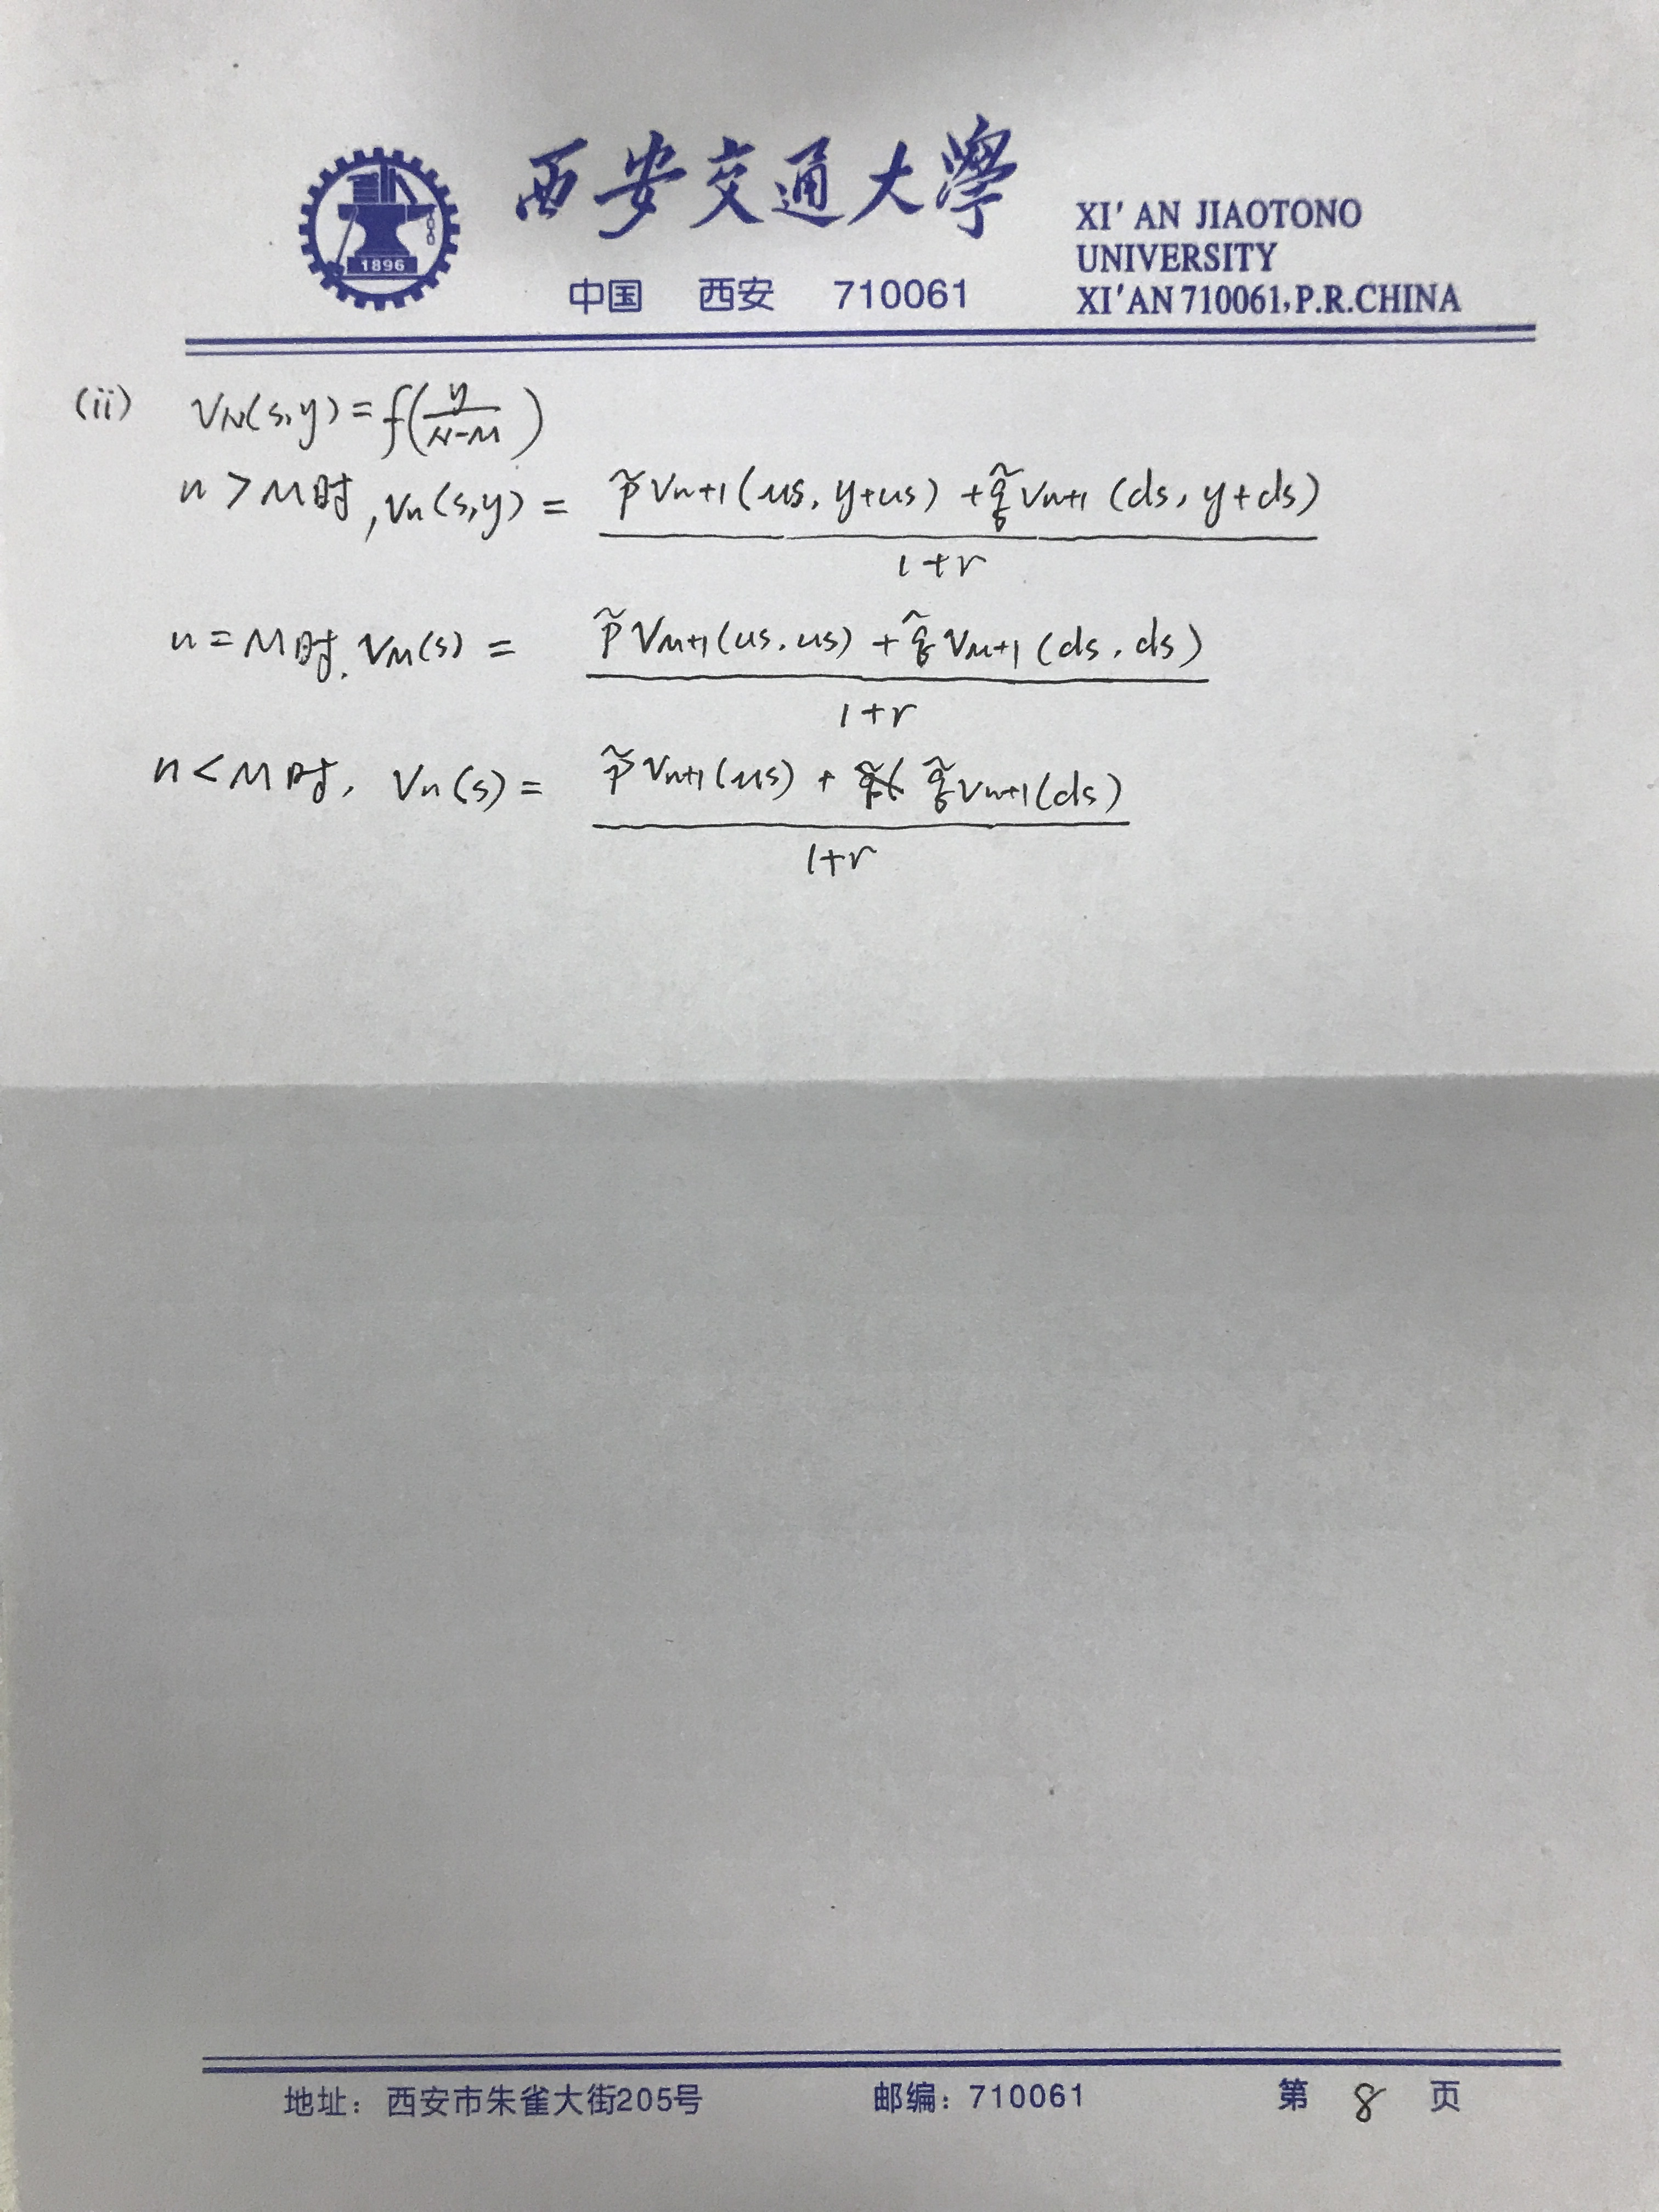 西安交通大學
1896
中国 西安 710061
XI'AN JIAOTONO
UNIVERSITY
XI'AN 710061,P.R.CHINA
(ii) Vₙ(s,y) = f(y/(N-M))
n > M时, Vₙ(s,y) = (p̃Vₙ₊₁(us, y+us) + q̃Vₙ₊₁(ds, y+ds))/(1+r)
n = M时, V_M(s) = (p̃V_{M+1}(us, us) + q̃V_{M+1}(ds, ds))/(1+r)
n < M时, Vₙ(s) = (p̃Vₙ₊₁(us) + q̃Vₙ₊₁(ds))/(1+r)
地址：西安市朱雀大街205号 邮编：710061 第 8 页